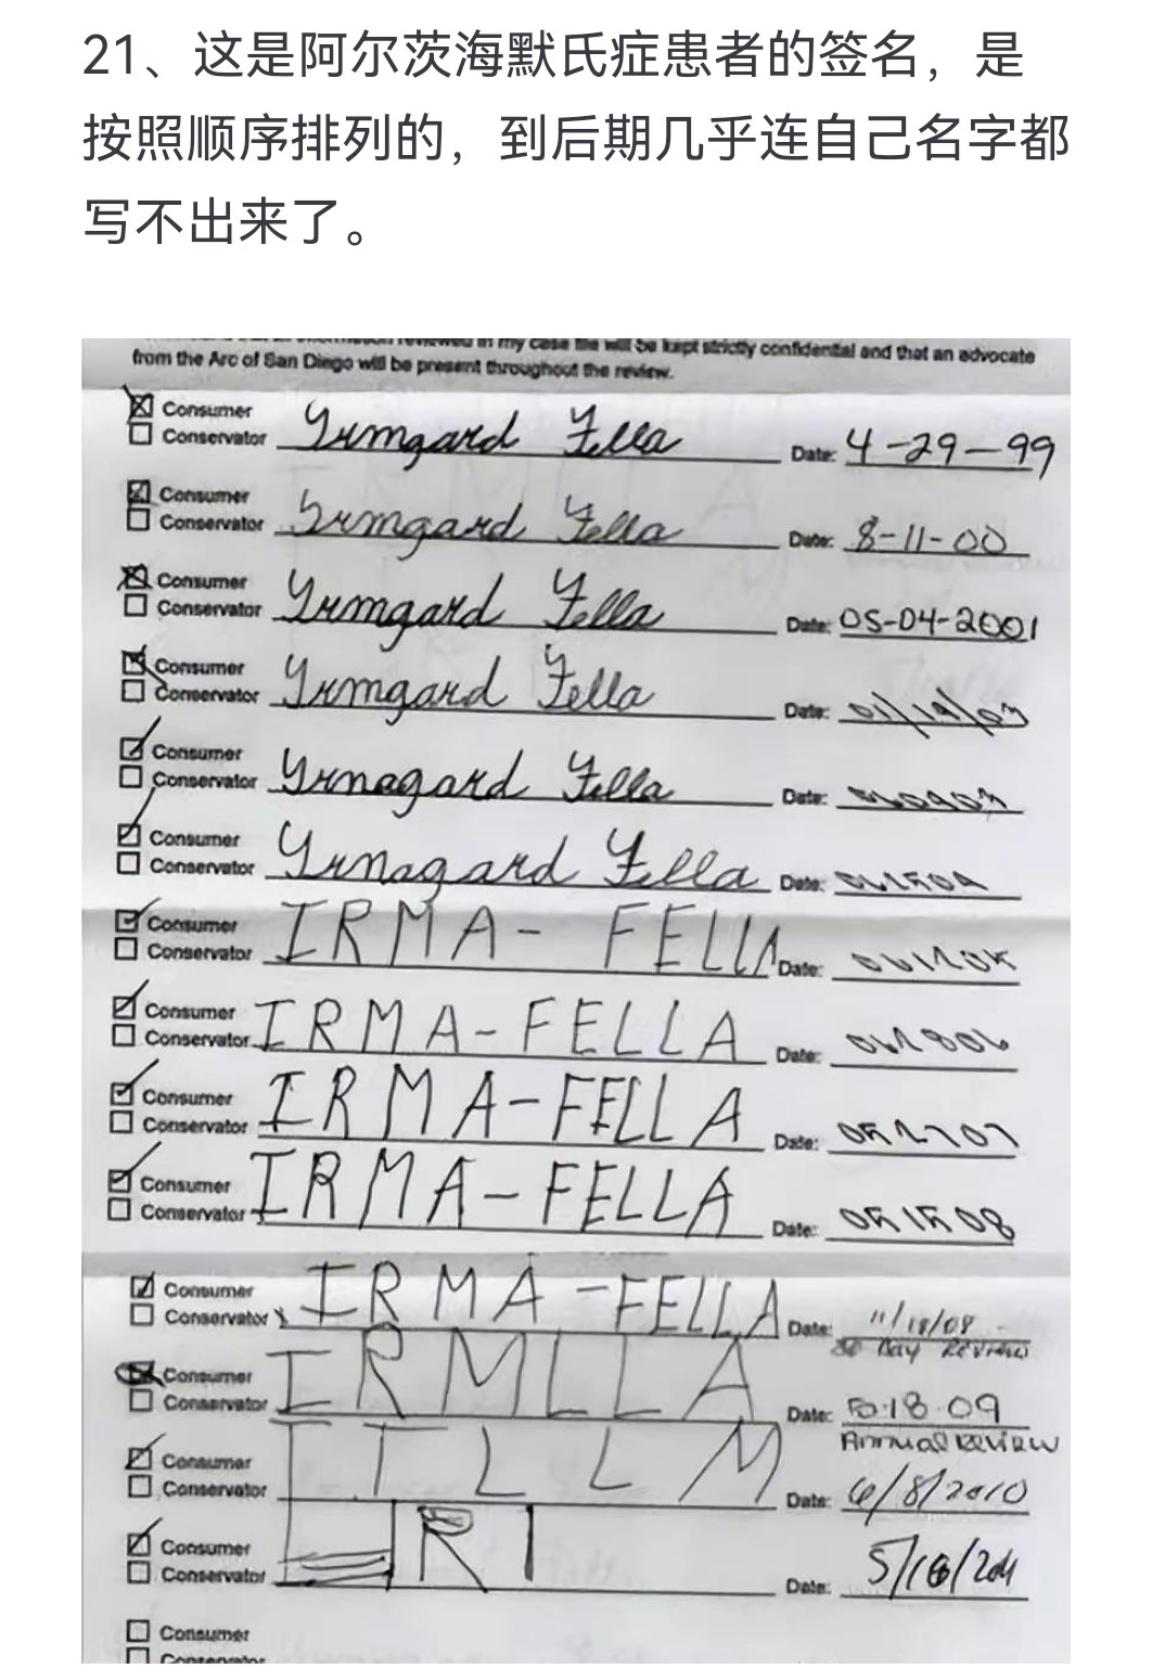 21、这是阿尔茨海默氏症患者的签名，是
按照顺序排列的，到后期几乎连自己名字都
写不出来了。
reviewed in my case file will be kept strictly confidential and that an advocate
from the Arc of San Diego will be present throughout the review.
Consumer
Conservator Yrmgard Fella Date: 4-29-99
Consumer
Conservator Yrmgard Fella Date: 8-11-00
Consumer
Conservator Yrmgard Fella Date: 05-04-2001
Consumer
Conservator Yrmgard Fella Date: 01/19/03
Consumer
Conservator Yrnagard Fella Date:
Consumer
Conservator Yrnagard Fella Date:
Consumer
Conservator IRMA- FELLA Date:
Consumer
Conservator IRMA-FELLA Date: 061806
Consumer
Conservator IRMA-FELLA Date: 052707
Consumer
Conservator IRMA-FELLA Date: 051508
Consumer
Conservator IRMA-FELLA Date: 11/18/08
Day Review
Consumer
Conservator IRMLLA Date: 18.09
Annual Review
Consumer
Conservator I L L M Date: 6/8/2010
Consumer
Conservator RI Date: 5/18/2011
Consumer
Conservator